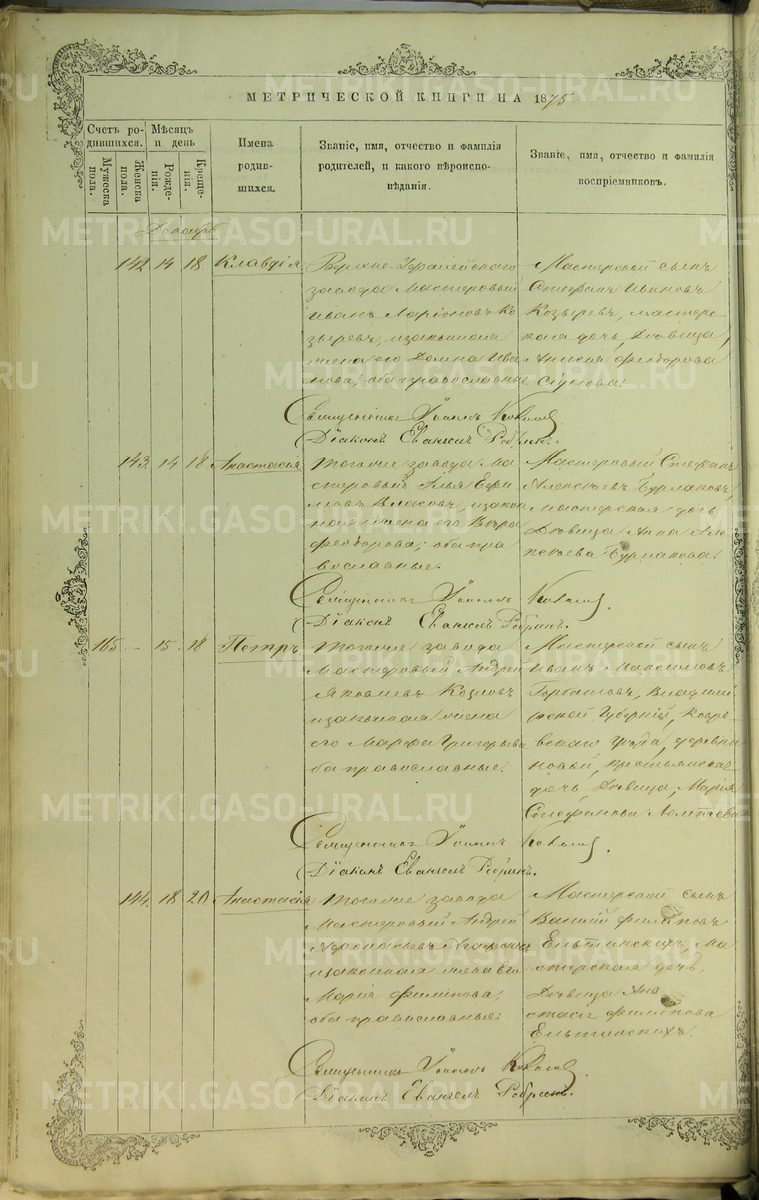 МЕТРИЧЕСКОЙ КНИГИ НА 1875
Счетъ родившихся.
Мужеска пола.
Женска пола.
Мѣсяцъ и день
Рожденія.
Крещенія.
Имена родившихся.
Званіе, имя, отчество и фамилія родителей, и какого вѣроисповѣданія.
Званіе, имя, отчество и фамилія воспріемниковъ.
Декабрь
142 14 18 Клавдія
Верхне-Уфалейского
завода Мастеровый
Иванъ Ларіоновъ Ко
зыревъ, и законная
жена его Домна Ива
нова; оба православные
Мастерской сынъ
Стефанъ Ивановъ
Козыревъ, мастерс
кая дочь, Дѣвица
Анисія Феодорова
Священникъ Іоаннъ
Діаконъ Евангелъ
143. 14 18 Анастасія
Тогоже завода Ма
стеровый Илья Ефи
мовъ Власовъ, и закон
ная жена его Вѣра
Феодорова; оба пра
вославные.
Мастеровый Стефанъ
Алексѣевъ Бурмаковъ,
мастерская дочь
Дѣвица Анна Але
ксѣева Бурмакова.
Священникъ Іоаннъ
Діаконъ Евангелъ
165. 15 18 Петръ
Тогоже завода
Мастеровый Андрей
Яковлевъ Козловъ
и законная жена
его Марфа Григорьева
оба православные.
Мастерской сынъ
Иванъ Максимовъ
Горбатовъ, Владими
рской Губерніи, Ковро
вскаго уѣзда, деревни
Новой, крестьянская
дочь Дѣвица, Марія
Стефанова
Священникъ Іоаннъ
Діаконъ Евангелъ
144. 18 20 Анастасія
Тогоже завода
Мастеровый Андрей
и законная жена его
Марія Филипова,
оба православные:
Мастерской сынъ
Василій Филиповъ
Ельтинскихъ, Ма
стерская дочь,
Дѣвица Ана
стасія Филипова
Ельтинскихъ.
Священникъ Іоаннъ
Діаконъ Евангелъ
METRIKI.GASO-URAL.RU